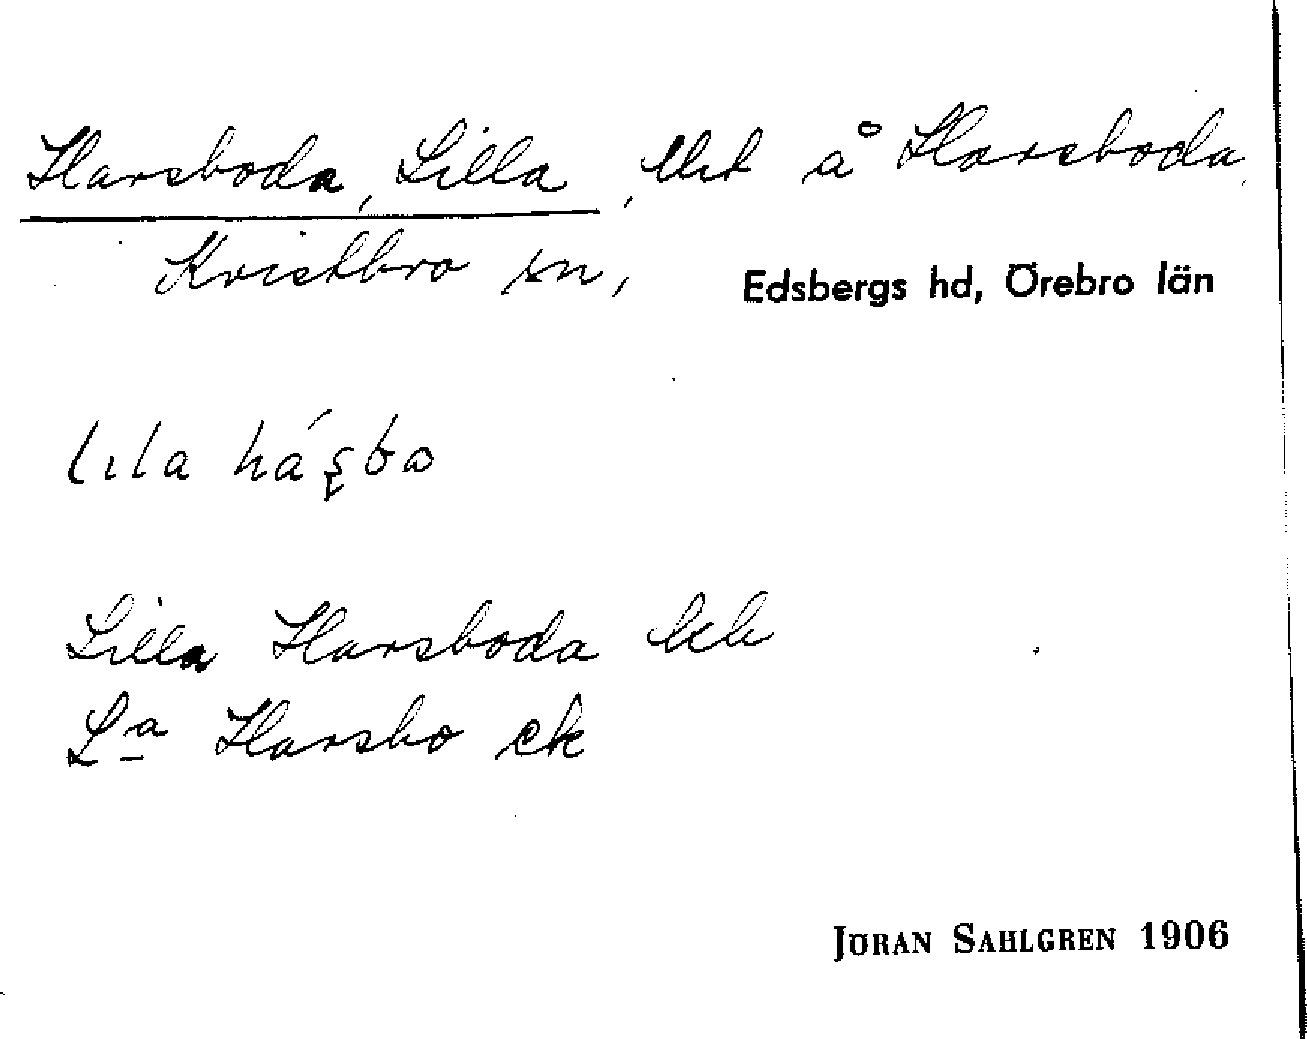 Harsboda, Lilla, t å Harsboda,
Kvistbro sn, Edsbergs hd, Örebro län
lıla há
Lilla Harsboda
Lª Harsbo ek
JÖRAN SAHLGREN 1906